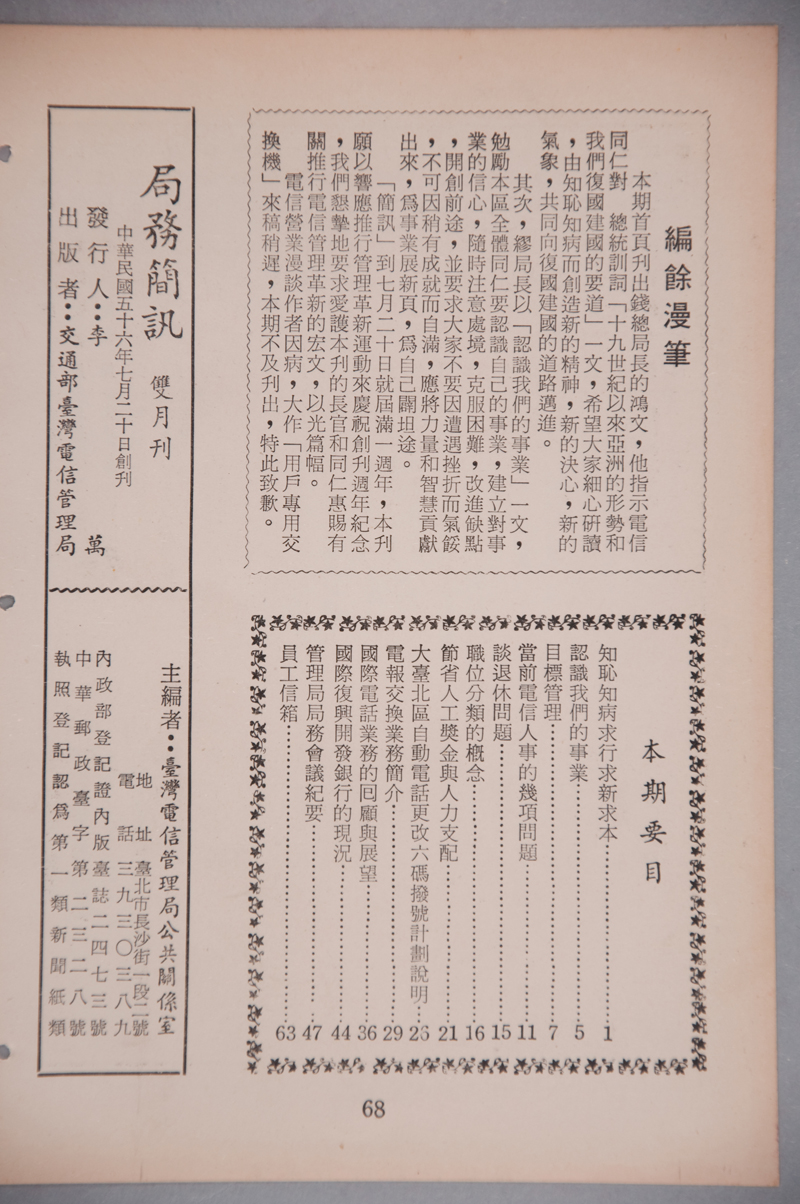 編餘漫筆
本期首頁刋出錢總局長的鴻文，他指示電信
同仁對　總統訓詞「十九世紀以來亞洲的形勢和
我們復國建國的要道」一文，希望大家細心硏讀
，由知恥知病而創造新的精神，新的決心，新的
氣象，共同向復國建國的道路邁進。
其次，繆局長以「認識我們的事業」一文，
勉勵本區全體同仁要認識自己的事業，建立對事
業的信心，隨時注意處境，克服困難，改進缺點
，開創前途，並要求大家不要因遭遇挫折而氣餒
，不可因稍有成就而自滿，應將力量和智慧貢獻
出來，爲事業展新頁，爲自己闢坦途。
「簡訊」到七月二十日就屆滿一週年，本刋
願以響應推行管理革新運動來慶祝創刋週年紀念
，我們懇摯地要求愛護本刋的長官和同仁惠賜有
關推行電信管理革新的宏文，以光篇幅。
電信營業漫談作者因病，大作「用戶專用交
換機」來稿稍遲，本期不及刋出，特此致歉。
本期要目
知恥知病求行求新求本…………1
認識我們的事業…………5
目標管理…………7
當前電信人事的幾項問題…………11
談退休問題…………15
職位分類的概念…………16
節省人工獎金與人力支配…………21
大臺北區自動電話更改六碼撥號計劃說明…26
電報交換業務簡介…………29
國際電話業務的回顧與展望…………36
國際復興開發銀行的現況…………44
管理局局務會議紀要…………47
員工信箱…………63
局務簡訊　雙月刊
中華民國五十六年七月二十日創刋
發行人：李　萬
出版者：交通部臺灣電信管理局
主編者：臺灣電信管理局公共關係室
地址臺北市長沙街一段二號
電話三九三〇三八九
內政部登記證內版臺誌二四七三號
中華郵政臺字第二三二八號
執照登記認爲第一類新聞紙類
68